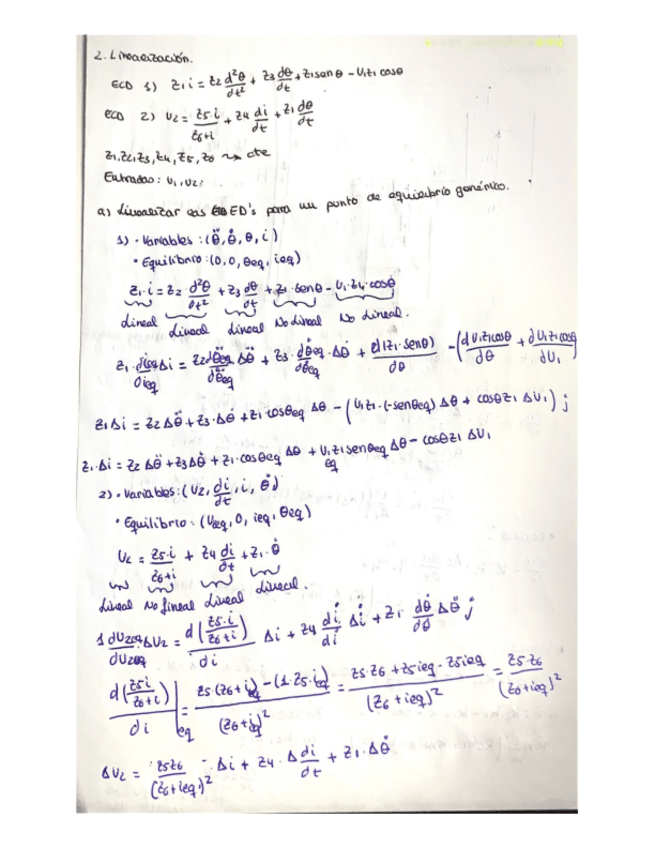 2. Linealización.
ECD 1) z1 i = z2 d²θ/dt² + z3 dθ/dt + z1 senθ - U1z1 cosθ
ECD 2) U2 = z5·i/z6+i + z4 di/dt + z1 dθ/dt
z1, z2, z3, z4, z5, z6 → cte
Entradas: U1, U2.
a) Linealizar las ED's para un punto de equilibrio genérico.
1) • Variables: (θ̈, θ̇, θ, i)
• Equilibrio: (0, 0, θeq, ieq)
z1·i = z2·d²θ/dt² + z3 dθ/dt + z1·senθ - U1·z1·cosθ
lineal lineal lineal No lineal No lineal.
z1·dieq/dieq Δi = z2dθ̈eq/dθ̈eq Δθ̈ + z3·dθ̇eq/dθ̇eq·Δθ̇ + d(z1·senθ)/dθ - (dU1z1cosθ/dθ + dU1z1cosθ/dU1)
z1Δi = z2Δθ̈ + z3·Δθ̇ + z1·cosθeq Δθ - (U1z1·(-senθeq)Δθ + cosθz1 ΔU1) ;
z1·Δi = z2Δθ̈ + z3Δθ̇ + z1·cosθeq Δθ + U1eq z1senθeq Δθ - cosθz1 ΔU1
2) • Variables: (U2, di/dt, i, θ̇)
• Equilibrio: (U2eq, 0, ieq, θeq)
U2 = z5·i/z6+i + z4 di/dt + z1·θ̇
lineal No lineal lineal lineal.
1 dU2eq/dU2eq ΔU2 = d(z5·i/z6+i)/di Δi + z4 di̇/di̇ Δi̇ + z1 dθ̇/dθ̇ Δθ̇ ;
d(z5i/z6+i)/di |eq = z5(z6+i)eq - (1·z5·i)eq/(z6+i)²eq = z5·z6 + z5ieq - z5ieq/(z6+ieq)² = z5·z6/(z6+ieq)²
ΔU2 = z5z6/(z6+ieq)² ·Δi + z4·Δdi/dt + z1·Δθ̇